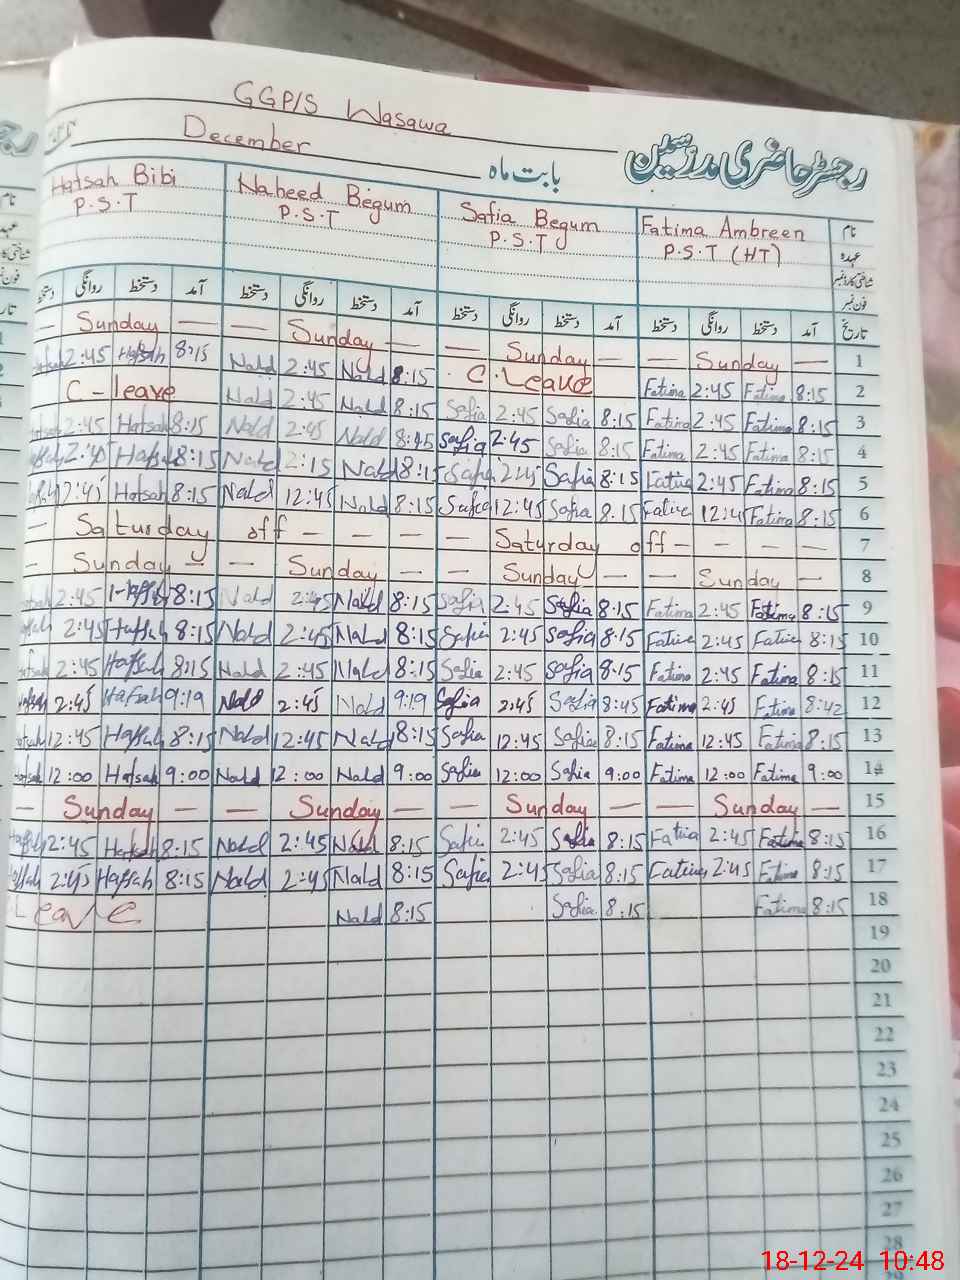 GGP/S Wasawa
رجسٹر حاضری مدرسین
December بابت ماہ
Hafsah Bibi Naheed Begum Safia Begum Fatima Ambreen نام
P.S.T P.S.T P.S.T P.S.T (HT) عہدہ
شناختی کارڈ نمبر
فون نمبر
دستخط روانگی دستخط آمد دستخط روانگی دستخط آمد دستخط روانگی دستخط آمد دستخط روانگی دستخط آمد تاریخ
— Sunday — — Sunday — — — Sunday — — Sunday — 1
Hafsah 2:45 Hafsah 8:15 Nald 2:45 Nald 8:15 C.Leave Fatima 2:45 Fatima 8:15 2
C-leave Nald 2:45 Nald 8:15 Safia 2:45 Safia 8:15 Fatima 2:45 Fatima 8:15 3
2:45 Hafsah 8:15 Nald 2:45 Nald 8:15 Safia 2:45 Safia 8:15 Fatima 2:45 Fatima 8:15 4
2:45 Hafsah 8:15 Nald 2:15 Nald 8:15 Safia 2:45 Safia 8:15 Fatima 2:45 Fatima 8:15 5
12:45 Hafsah 8:15 Nald 12:45 Nald 8:15 Safia 12:45 Safia 8:15 Fatima 12:45 Fatima 8:15 6
— Saturday off — — — — Saturday off — — — — 7
— Sunday — — Sunday — — Sunday — — Sunday — 8
2:45 Hafsah 8:15 Nald 2:45 Nald 8:15 Safia 2:45 Safia 8:15 Fatima 2:45 Fatima 8:15 9
2:45 Hafsah 8:15 Nald 2:45 Nald 8:15 Safia 2:45 Safia 8:15 Fatima 2:45 Fatima 8:15 10
2:45 Hafsah 8:15 Nald 2:45 Nald 8:15 Safia 2:45 Safia 8:15 Fatima 2:45 Fatima 8:15 11
2:45 Hafsah 9:19 Nald 2:45 Nald 9:19 Safia 2:45 Safia 8:45 Fatima 2:45 Fatima 8:42 12
12:45 Hafsah 8:15 Nald 12:45 Nald 8:15 Safia 12:45 Safia 8:15 Fatima 12:45 Fatima 8:15 13
12:00 Hafsah 9:00 Nald 12:00 Nald 9:00 Safia 12:00 Safia 9:00 Fatima 12:00 Fatima 9:00 14
— Sunday — — Sunday — — Sunday — — Sunday — 15
2:45 Hafsah 8:15 Nald 2:45 Nald 8:15 Safia 2:45 Safia 8:15 Fatima 2:45 Fatima 8:15 16
2:45 Hafsah 8:15 Nald 2:45 Nald 8:15 Safia 2:45 Safia 8:15 Fatima 2:45 Fatima 8:15 17
Leave Nald 8:15 Safia 8:15 Fatima 8:15 18
19
20
21
22
23
24
25
26
27
28
18-12-24 10:48